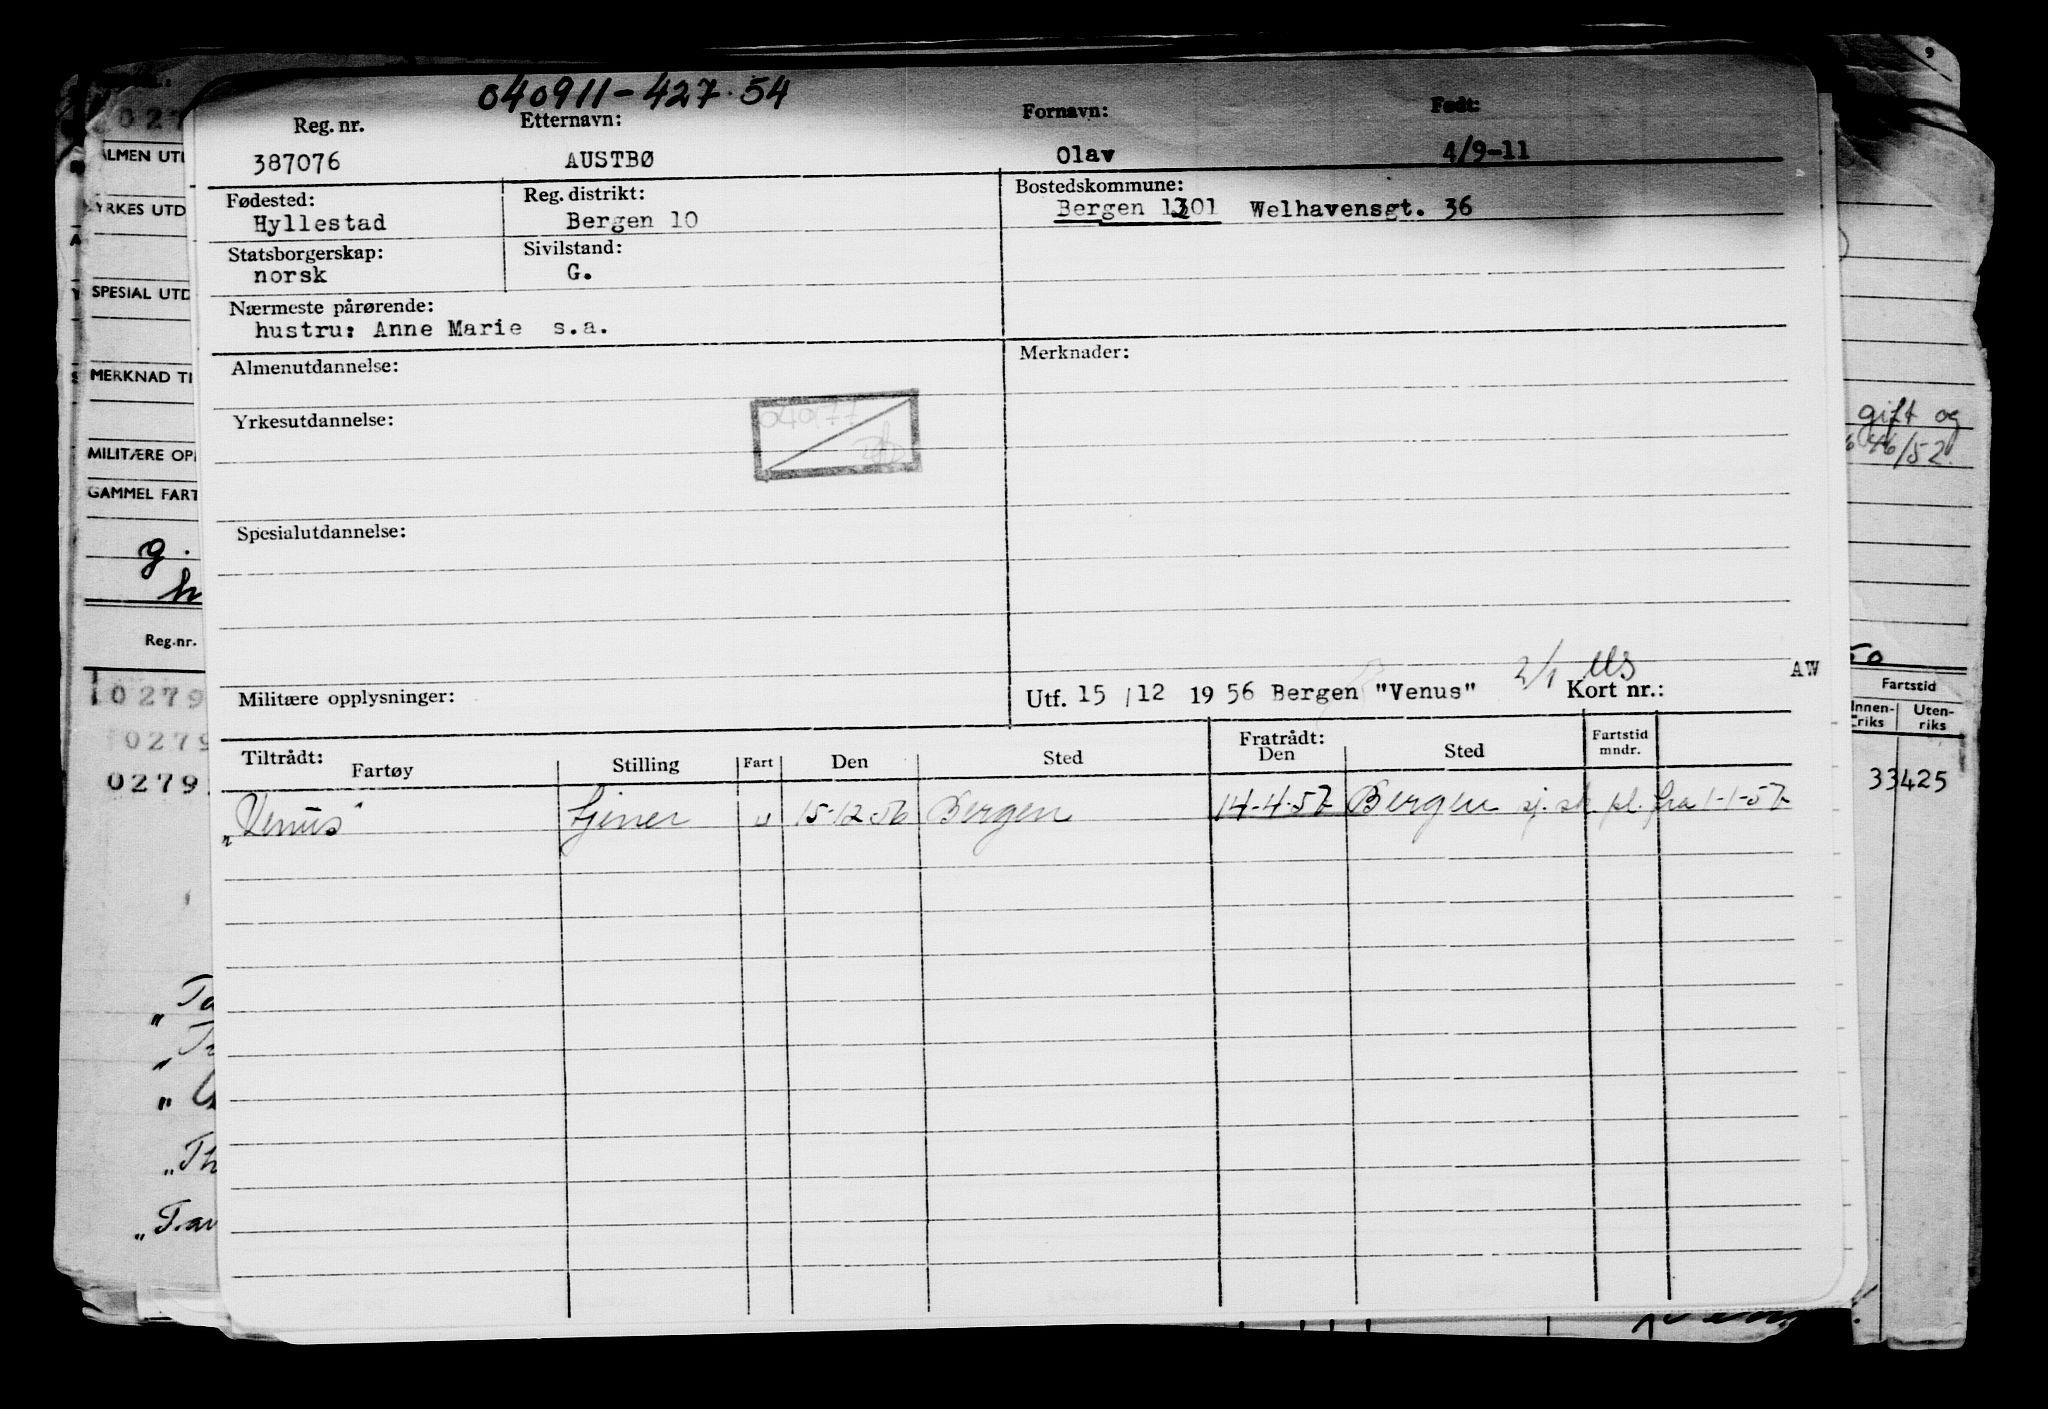 040911-427.54
Reg. nr. Etternavn: Fornavn: Født:
387076 AUSTBØ Olav 4/9-11
Fødested: Reg. distrikt: Bostedskommune:
Hyllestad Bergen 10 Bergen 1301 Welhavensgt. 36
Statsborgerskap: Sivilstand:
norsk G.
Nærmeste pårørende:
hustru: Anne Marie s.a.
Almenutdannelse: Merknader:
Yrkesutdannelse:
Spesialutdannelse:
Militære opplysninger: Utf. 15/12 1956 Bergen "Venus" 2/1 Kort nr.: AW
Tiltrådt: Fratrådt:
Fartøy Stilling Fart Den Sted Den Sted Fartstid mndr.
"Venus" tjener u 15-12-56 Bergen 14-4-57 Bergen sj. sk pl. fra 1-1-57
027
ALMEN UTD
YRKES UTD
SPESIAL UTD
MERKNAD TI
MILITÆRE OP
GAMMEL FART
g.
h
Reg.nr.
0279
0279
0279
"Ta
"Th
"Tar
gift og
46/52.
50
Fartstid
Innenriks Utenriks
33425